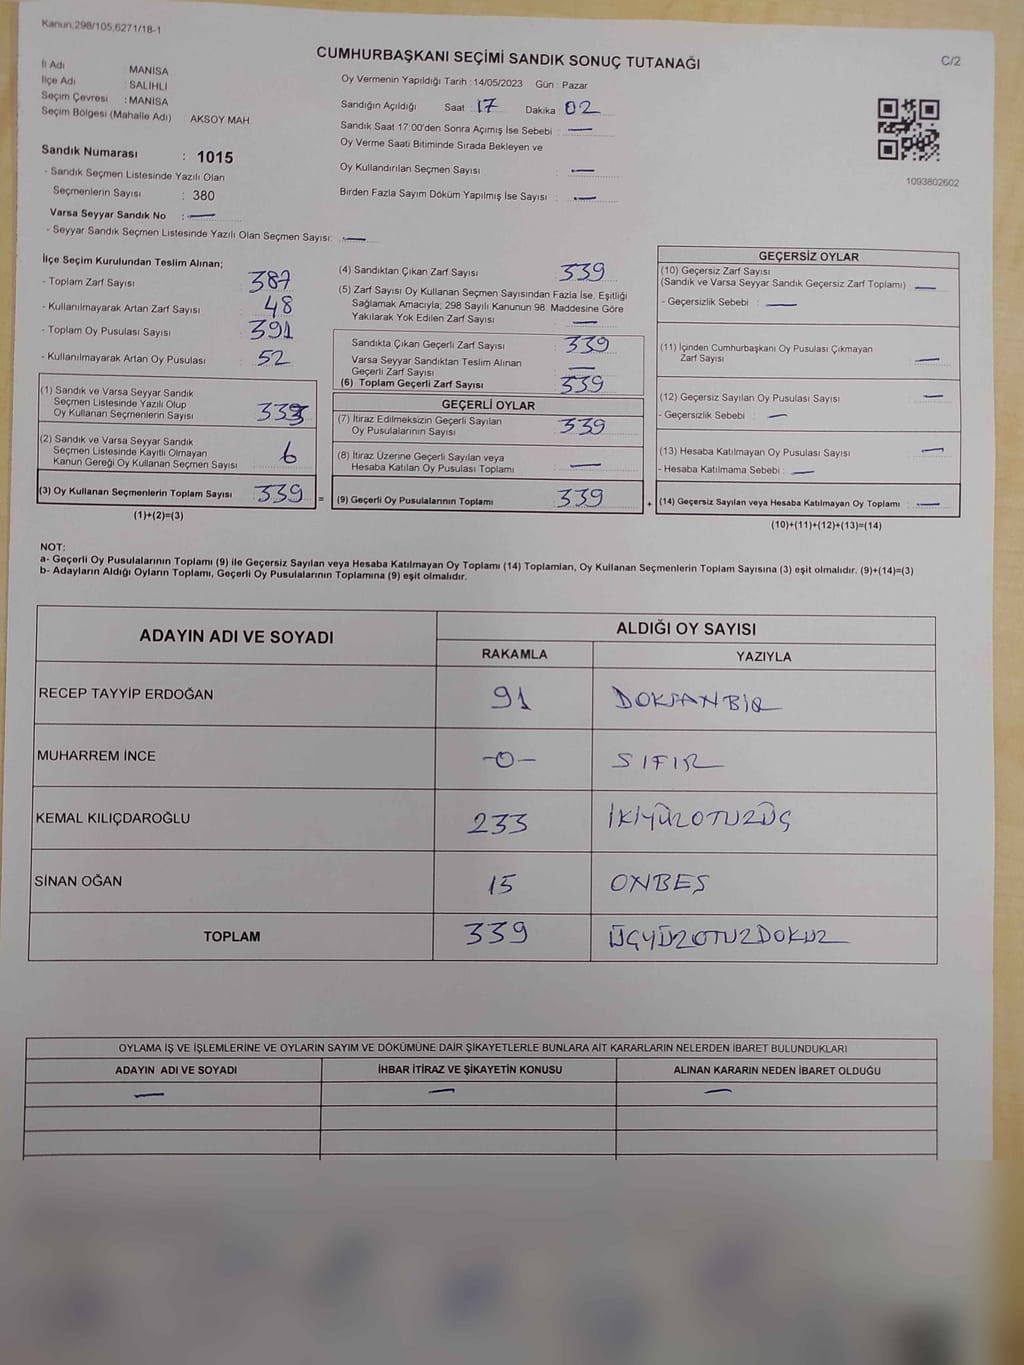 Kanun:298/105,6271/18-1
C/2
CUMHURBAŞKANI SEÇİMİ SANDIK SONUÇ TUTANAĞI
İl Adı MANİSA
İlçe Adı SALİHLİ
Seçim Çevresi : MANİSA
Seçim Bölgesi (Mahalle Adı) : AKSOY MAH
Sandık Numarası : 1015
- Sandık Seçmen Listesinde Yazılı Olan
Seçmenlerin Sayısı : 380
Varsa Seyyar Sandık No : —
- Seyyar Sandık Seçmen Listesinde Yazılı Olan Seçmen Sayısı: —
Oy Vermenin Yapıldığı Tarih : 14/05/2023 Gün : Pazar
Sandığın Açıldığı Saat : 17 Dakika : 02
Sandık Saat 17:00'den Sonra Açımış İse Sebebi : —
Oy Verme Saati Bitiminde Sırada Bekleyen ve
Oy Kullandırılan Seçmen Sayısı : —
Birden Fazla Sayım Döküm Yapılmış İse Sayısı : —
1093802602
İlçe Seçim Kurulundan Teslim Alınan;
- Toplam Zarf Sayısı : 387
- Kullanılmayarak Artan Zarf Sayısı : 48
- Toplam Oy Pusulası Sayısı : 391
- Kullanılmayarak Artan Oy Pusulası : 52
(1) Sandık ve Varsa Seyyar Sandık
Seçmen Listesinde Yazılı Olup
Oy Kullanan Seçmenlerin Sayısı : 333
(2) Sandık ve Varsa Seyyar Sandık
Seçmen Listesinde Kayıtlı Olmayan
Kanun Gereği Oy Kullanan Seçmen Sayısı : 6
(3) Oy Kullanan Seçmenlerin Toplam Sayısı : 339 =
(1)+(2)=(3)
(4) Sandıktan Çıkan Zarf Sayısı : 339
(5) Zarf Sayısı Oy Kullanan Seçmen Sayısından Fazla İse, Eşitliği
Sağlamak Amacıyla; 298 Sayılı Kanunun 98. Maddesine Göre
Yakılarak Yok Edilen Zarf Sayısı : —
Sandıkta Çıkan Geçerli Zarf Sayısı : 339
Varsa Seyyar Sandıktan Teslim Alınan
Geçerli Zarf Sayısı : —
(6) Toplam Geçerli Zarf Sayısı : 339
GEÇERLİ OYLAR
(7) İtiraz Edilmeksizin Geçerli Sayılan
Oy Pusulalarının Sayısı : 339
(8) İtiraz Üzerine Geçerli Sayılan veya
Hesaba Katılan Oy Pusulası Toplamı : —
(9) Geçerli Oy Pusulalarının Toplamı : 339 +
GEÇERSİZ OYLAR
(10) Geçersiz Zarf Sayısı
(Sandık ve Varsa Seyyar Sandık Geçersiz Zarf Toplamı) : —
- Geçersizlik Sebebi : —
(11) İçinden Cumhurbaşkanı Oy Pusulası Çıkmayan
Zarf Sayısı : —
(12) Geçersiz Sayılan Oy Pusulası Sayısı : —
- Geçersizlik Sebebi : —
(13) Hesaba Katılmayan Oy Pusulası Sayısı : —
- Hesaba Katılmama Sebebi : —
(14) Geçersiz Sayılan veya Hesaba Katılmayan Oy Toplamı : —
(10)+(11)+(12)+(13)=(14)
NOT:
a- Geçerli Oy Pusulalarının Toplamı (9) ile Geçersiz Sayılan veya Hesaba Katılmayan Oy Toplamı (14) Toplamları, Oy Kullanan Seçmenlerin Toplam Sayısına (3) eşit olmalıdır. (9)+(14)=(3)
b- Adayların Aldığı Oyların Toplamı, Geçerli Oy Pusulalarının Toplamına (9) eşit olmalıdır.
ADAYIN ADI VE SOYADI ALDIĞI OY SAYISI
RAKAMLA YAZIYLA
RECEP TAYYİP ERDOĞAN 91 DOKSANBİR
MUHARREM İNCE -0- SIFIR
KEMAL KILIÇDAROĞLU 233 İKİYÜZOTUZÜÇ
SİNAN OĞAN 15 ONBEŞ
TOPLAM 339 ÜÇYÜZOTUZDOKUZ
OYLAMA İŞ VE İŞLEMLERİNE VE OYLARIN SAYIM VE DÖKÜMÜNE DAİR ŞİKAYETLERLE BUNLARA AİT KARARLARIN NELERDEN İBARET BULUNDUKLARI
ADAYIN ADI VE SOYADI İHBAR İTİRAZ VE ŞİKAYETİN KONUSU ALINAN KARARIN NEDEN İBARET OLDUĞU
— — —